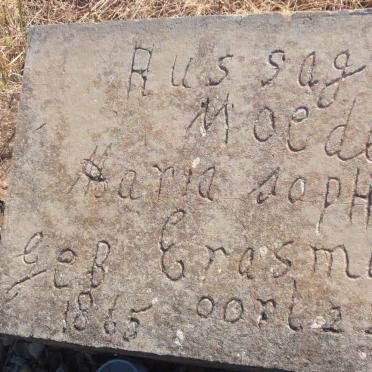 Rus sag
Moede
Maria soph
Geb Erasm
1865 oorl